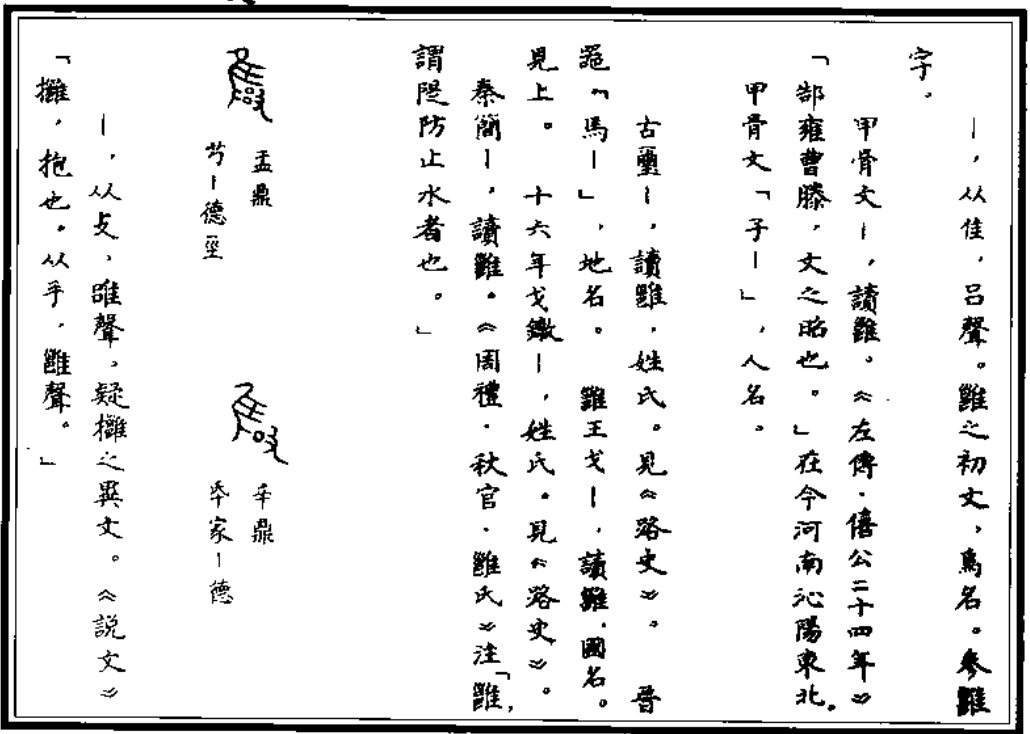 丨,从隹,吕聲。雝之初文,鳥名。參雝
字。
甲骨文丨,讀雝。《左傳·僖公二十四年》
「郜雍曹滕,文之昭也。」在今河南沁陽東北。
甲骨文「子丨」,人名。
古璽丨,讀雝,姓氏。見《路史》。 晉
「馬丨」,地名。 雝王戈丨,讀雝,國名。
見上。 十六年戈鐓丨,姓氏。見《路史》。
秦簡丨,讀雝。《周禮·秋官·雝氏》注「雝,
謂隄防止水者也。」
盂鼎
芍丨德巠
辛鼎
氒家丨德
丨,从攴,聲,疑之異文。《說文》
「,抱也。从手,雝聲。」